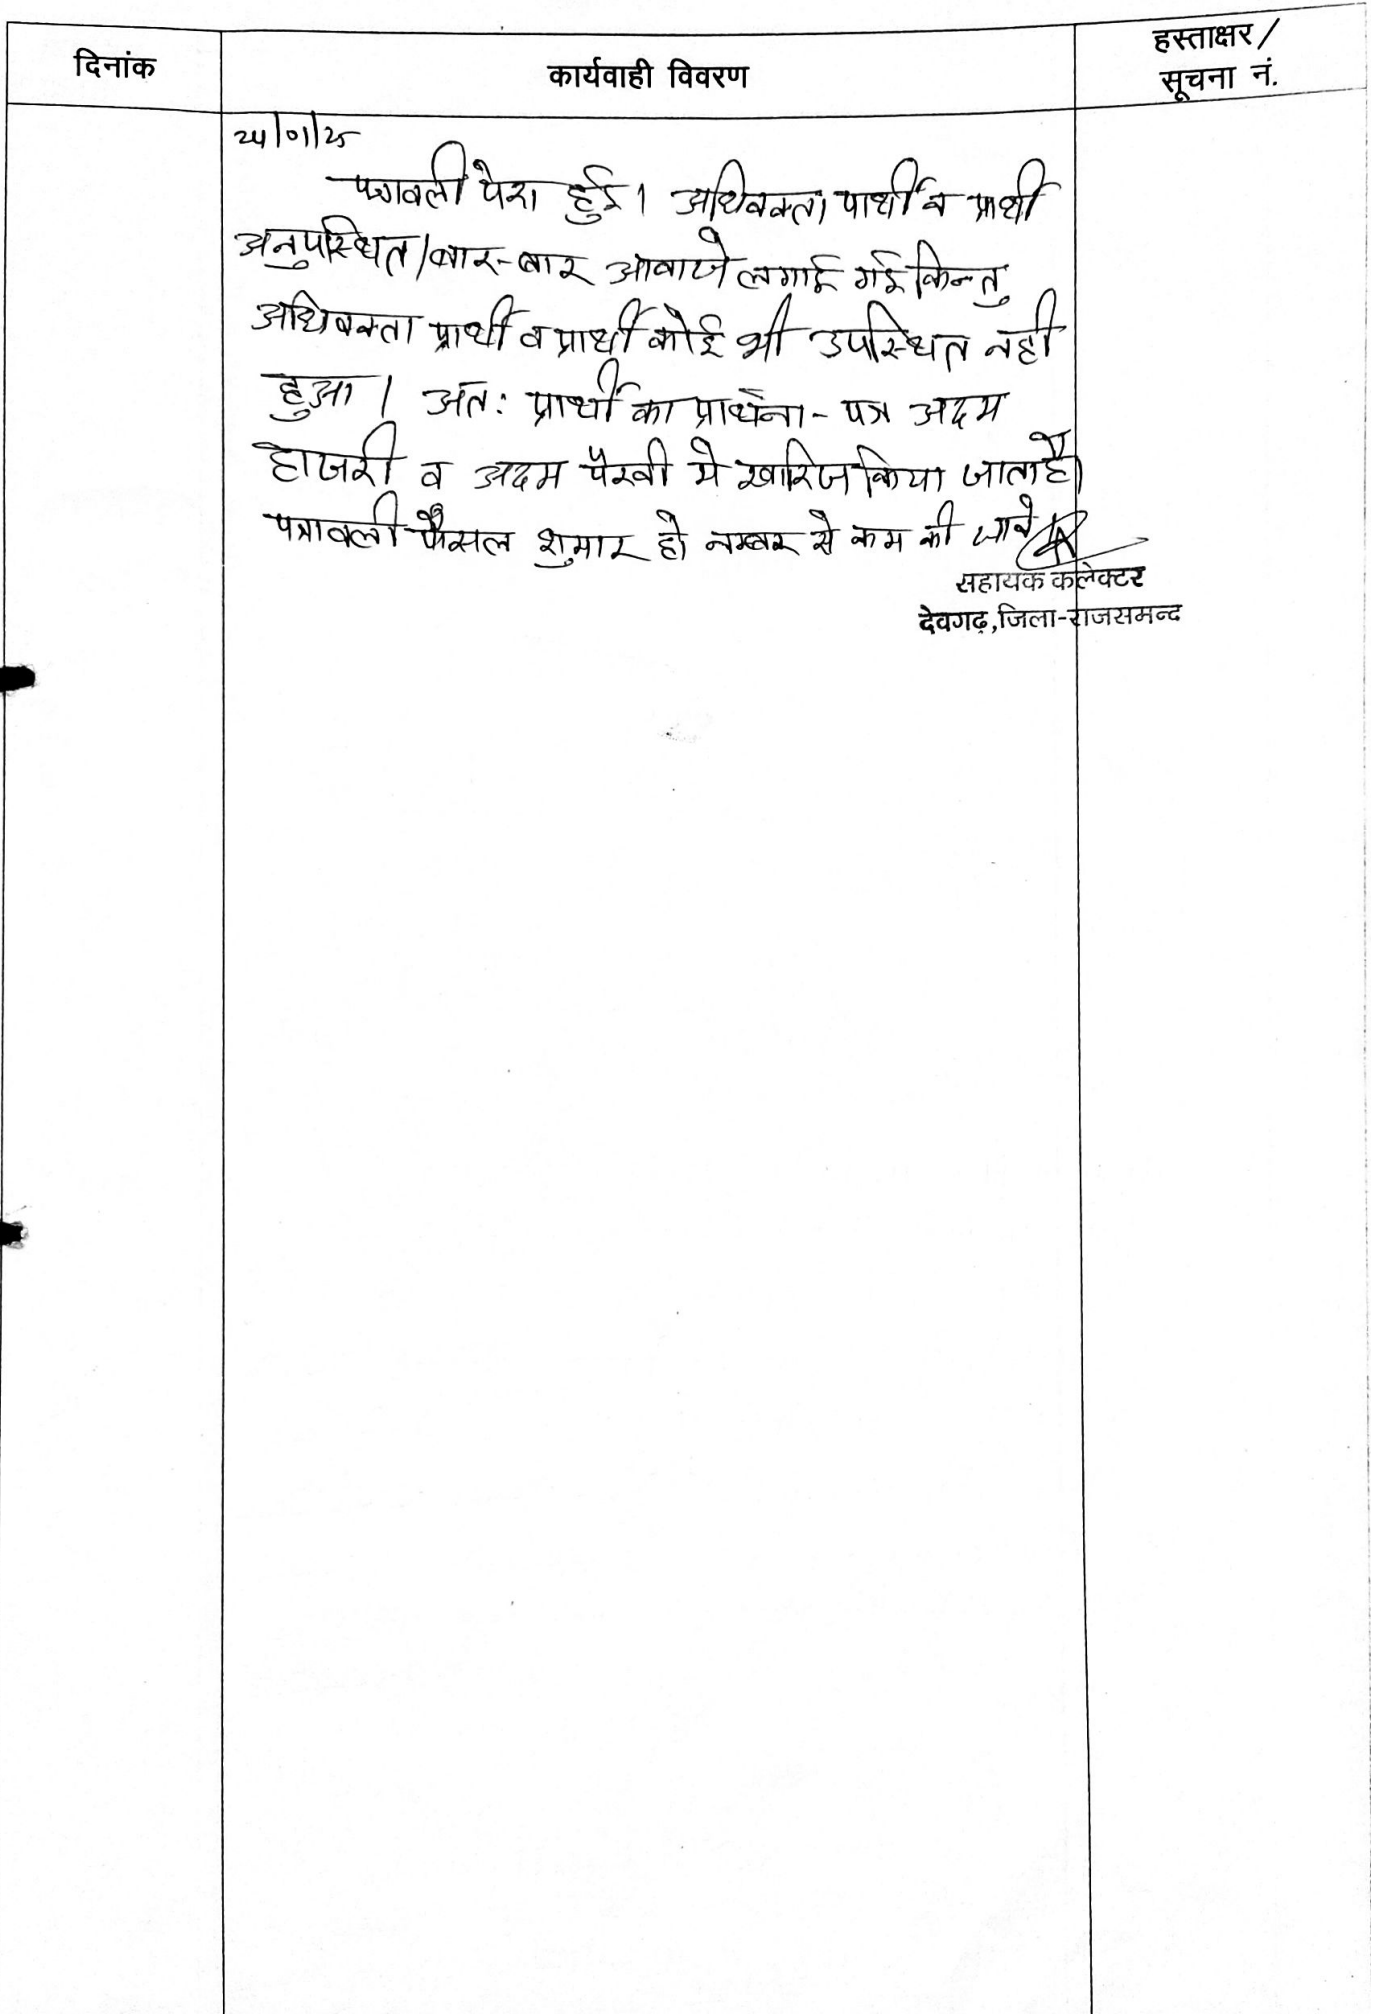 दिनांक
कार्यवाही विवरण
हस्ताक्षर /
सूचना नं.
24/01/25
पत्रावली पेश हुई। अधिवक्ता प्रार्थी व प्रार्थी
अनुपस्थित। बार-बार आवाजे लगाई गई किन्तु
अधिवक्ता प्रार्थी व प्रार्थी कोई भी उपस्थित नही
हुआ। अतः प्रार्थी का प्रार्थना-पत्र अदम
हाजरी व अदम पैरवी मे खारिज किया जाता है।
पत्रावली फैसल शुमार हो नम्बर से कम की जावे
सहायक कलेक्टर
देवगढ़,जिला-राजसमन्द